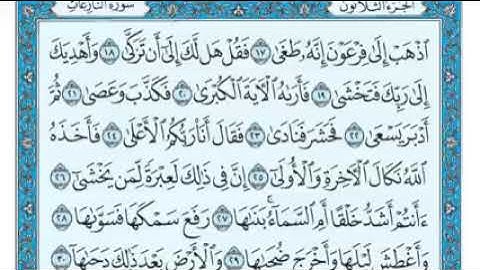 الجزء الثلاثون سورة النازعات
ٱذْهَبْ إِلَىٰ فِرْعَوْنَ إِنَّهُۥ طَغَىٰ ١٧ فَقُلْ هَل لَّكَ إِلَىٰٓ أَن تَزَكَّىٰ ١٨ وَأَهْدِيَكَ
إِلَىٰ رَبِّكَ فَتَخْشَىٰ ١٩ فَأَرَىٰهُ ٱلْءَايَةَ ٱلْكُبْرَىٰ ٢٠ فَكَذَّبَ وَعَصَىٰ ٢١ ثُمَّ
أَدْبَرَ يَسْعَىٰ ٢٢ فَحَشَرَ فَنَادَىٰ ٢٣ فَقَالَ أَنَا۠ رَبُّكُمُ ٱلْأَعْلَىٰ ٢٤ فَأَخَذَهُ
ٱللَّهُ نَكَالَ ٱلْءَاخِرَةِ وَٱلْأُولَىٰٓ ٢٥ إِنَّ فِى ذَٰلِكَ لَعِبْرَةً لِّمَن يَخْشَىٰٓ ٢٦
ءَأَنتُمْ أَشَدُّ خَلْقًا أَمِ ٱلسَّمَآءُ ۚ بَنَىٰهَا ٢٧ رَفَعَ سَمْكَهَا فَسَوَّىٰهَا ٢٨
وَأَغْطَشَ لَيْلَهَا وَأَخْرَجَ ضُحَىٰهَا ٢٩ وَٱلْأَرْضَ بَعْدَ ذَٰلِكَ دَحَىٰهَآ ٣٠